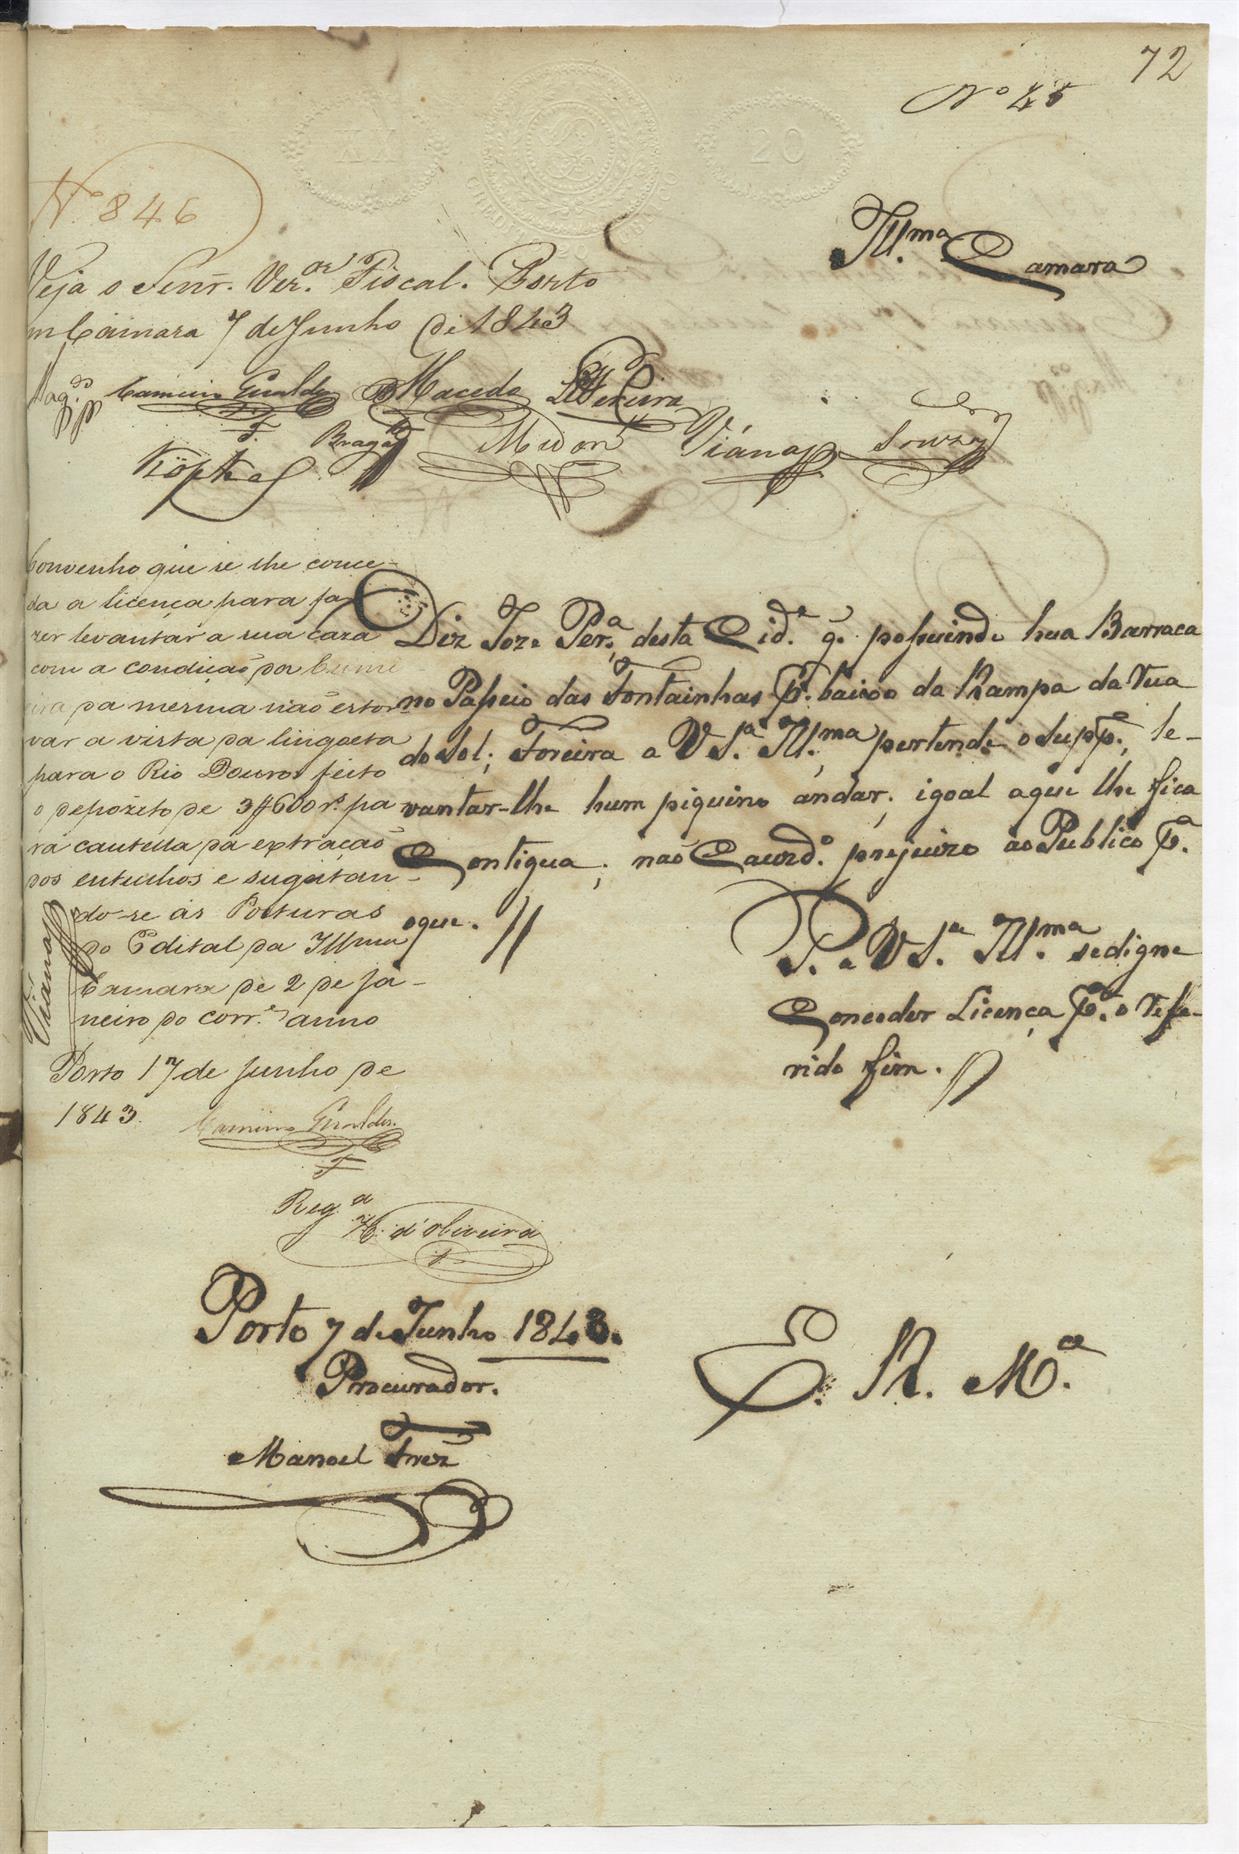 72
Nº 45
XX
CREDITO PUBLICO
20
Nº 846
Illma. Camara
Veja o Senr. Ver.or Fiscal. Porto
em Camara 7 de Junho de 1843
Camciro Giraldes Macedo Pereira
F.
Köpke Braga Viana Souza
Convenho que se lhe conce-
da a licença para fa
zer levantar a sua caza
com a condição da Cumi-
eira da mesma não estor-
var a vista da lingoeta
para o Rio Douro, feito
o depozito de 3$600 rs. pa
ra cautella da extração
dos entulhos e sugeitan-
do-se ás Posturas
do Edital da Illma
Camara de 2 de Ja-
neiro do corr.e anno
Viana
Porto 17 de Junho de
1843.
Giraldes
F.
Reg.da
d'Oliveira
Diz Joze Per.a desta Cid.e q. possuindo hua Barraca
no Passeio das Fontainhas p.r baixo da Rampa da Rua
do Sol; Foreira a V S.a Illma, pertende o Supp.e, le-
vantar-lhe hum piquino andar, igoal aque lhe fica
Contigua; não Cauzd.o prejuizo ao Publico P.a
oque. //
P. a V S.a Illma. sedigne
Conceder Licença P.a o refe-
rido fim.
Porto 7 de Junho 1843.
Procurador.
Manoel
E. R. M.ce